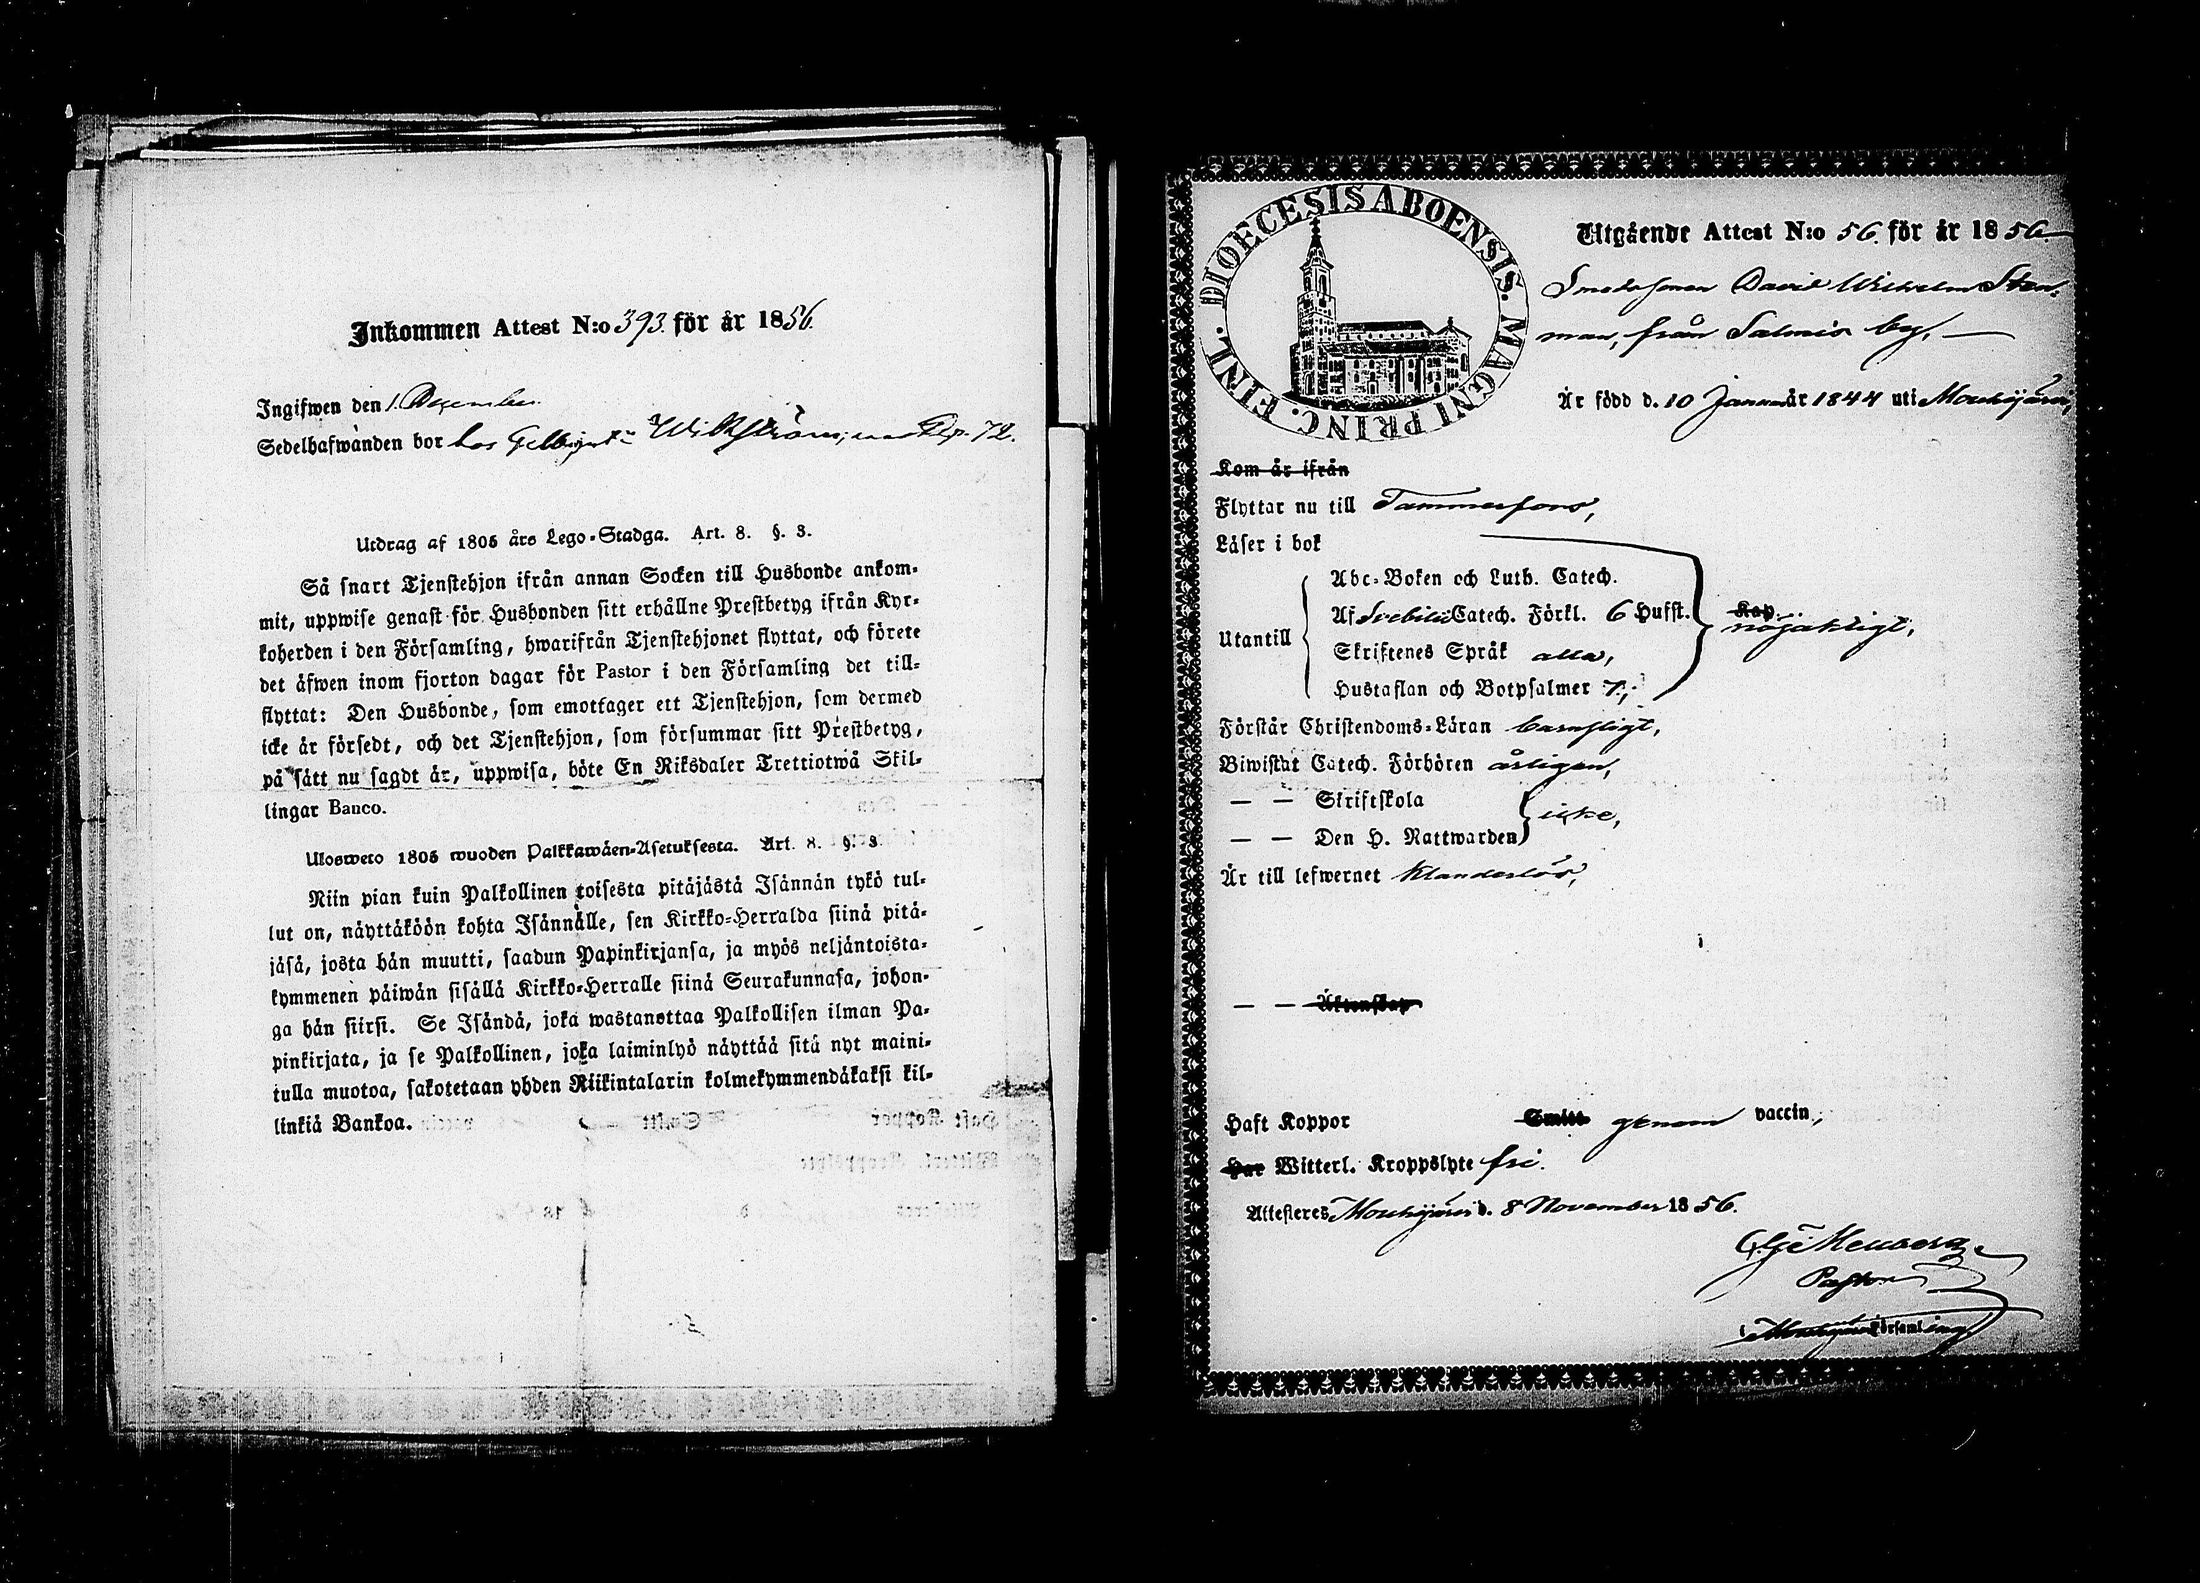 Inkommen Attest N:o 393. för år 1856.
Ingifwen den 1. December
Sedelhafwanden bor hos Wikström, 72.
Utdrag af 1805 års Lego-Stadga. Art. 8. §. 3.
Så snart Tjenstehjon ifrån annan Socken till Husbonde ankom-
mit, uppwise genast för Husbonden sitt erhållne Prestbetyg ifrån Kyr-
koherden i den Församling, hwarifrån Tjenstehjonet flyttat, och förete
det äfwen inom fjorton dagar för Pastor i den Församling det till-
flyttat: Den Husbonde, som emottager ett Tjenstehjon, som dermed
icke är försedt, och det Tjenstehjon, som försummar sitt Prestbetyg,
på sätt nu sagdt är, uppwisa, böte En Riksdaler Trettiotwå Skil-
lingar Banco.
Ulosweto 1805 wuoden Palkkawäen-Asetuksesta. Art. 8. §. 3.
Niin pian kuin Palkollinen toisesta pitäjästä Isännän tykö tul-
lut on, näyttäköön kohta Isännälle, sen Kirkko-Herralda siinä pitä-
jäsä, josta hän muutti, saadun Papinkirjansa, ja myös neljäntoista-
kymmenen päiwän sisällä Kirkko-Herralle siinä Seurakunnasa, johon-
ga hän siirsi. Se Isändä, joka wastanottaa Palkollisen ilman Pa-
pinkirjata, ja se Palkollinen, joka laiminlyö näyttää sitä nyt maini-
tulla muotoa, sakotetaan yhden Riikintalarin kolmekymmendäkaksi kil-
linkiä Bankoa.
DIOECESIS ABOENSIS. MAGNI PRINC. FINL.
Utgående Attest N:o 56. för år 1856.
Smedssonen David Wilhelm Sten-
man, från Salmis by,
Är född d. 10 Januari år 1844 uti Mouhijärvi,
Kom år ifrån
Flyttar nu till Tammerfors,
Läser i bok
Utantill
Abc-Boken och Luth. Catech.
Af Svebilii Catech. Förkl. 6 Hufst.
Skriftenes Språk alla,
Hustaflan och Botpsalmer 7,
Kap.
nöjaktigt,
Förstår Christendoms-Läran barnsligt,
Biwistat Catech. Förhören årligen,
— — Skriftskola
icke,
— — Den H. Nattwarden
Är till lefwernet klanderlös,
— — Äktenskap
Haft Koppor Smitt genom vaccin,
Har Witterl. Kroppslyte fri.
Attesteres Mouhijärvi d. 8 November 1856.
Pastor
i Mouhijärvi Församling